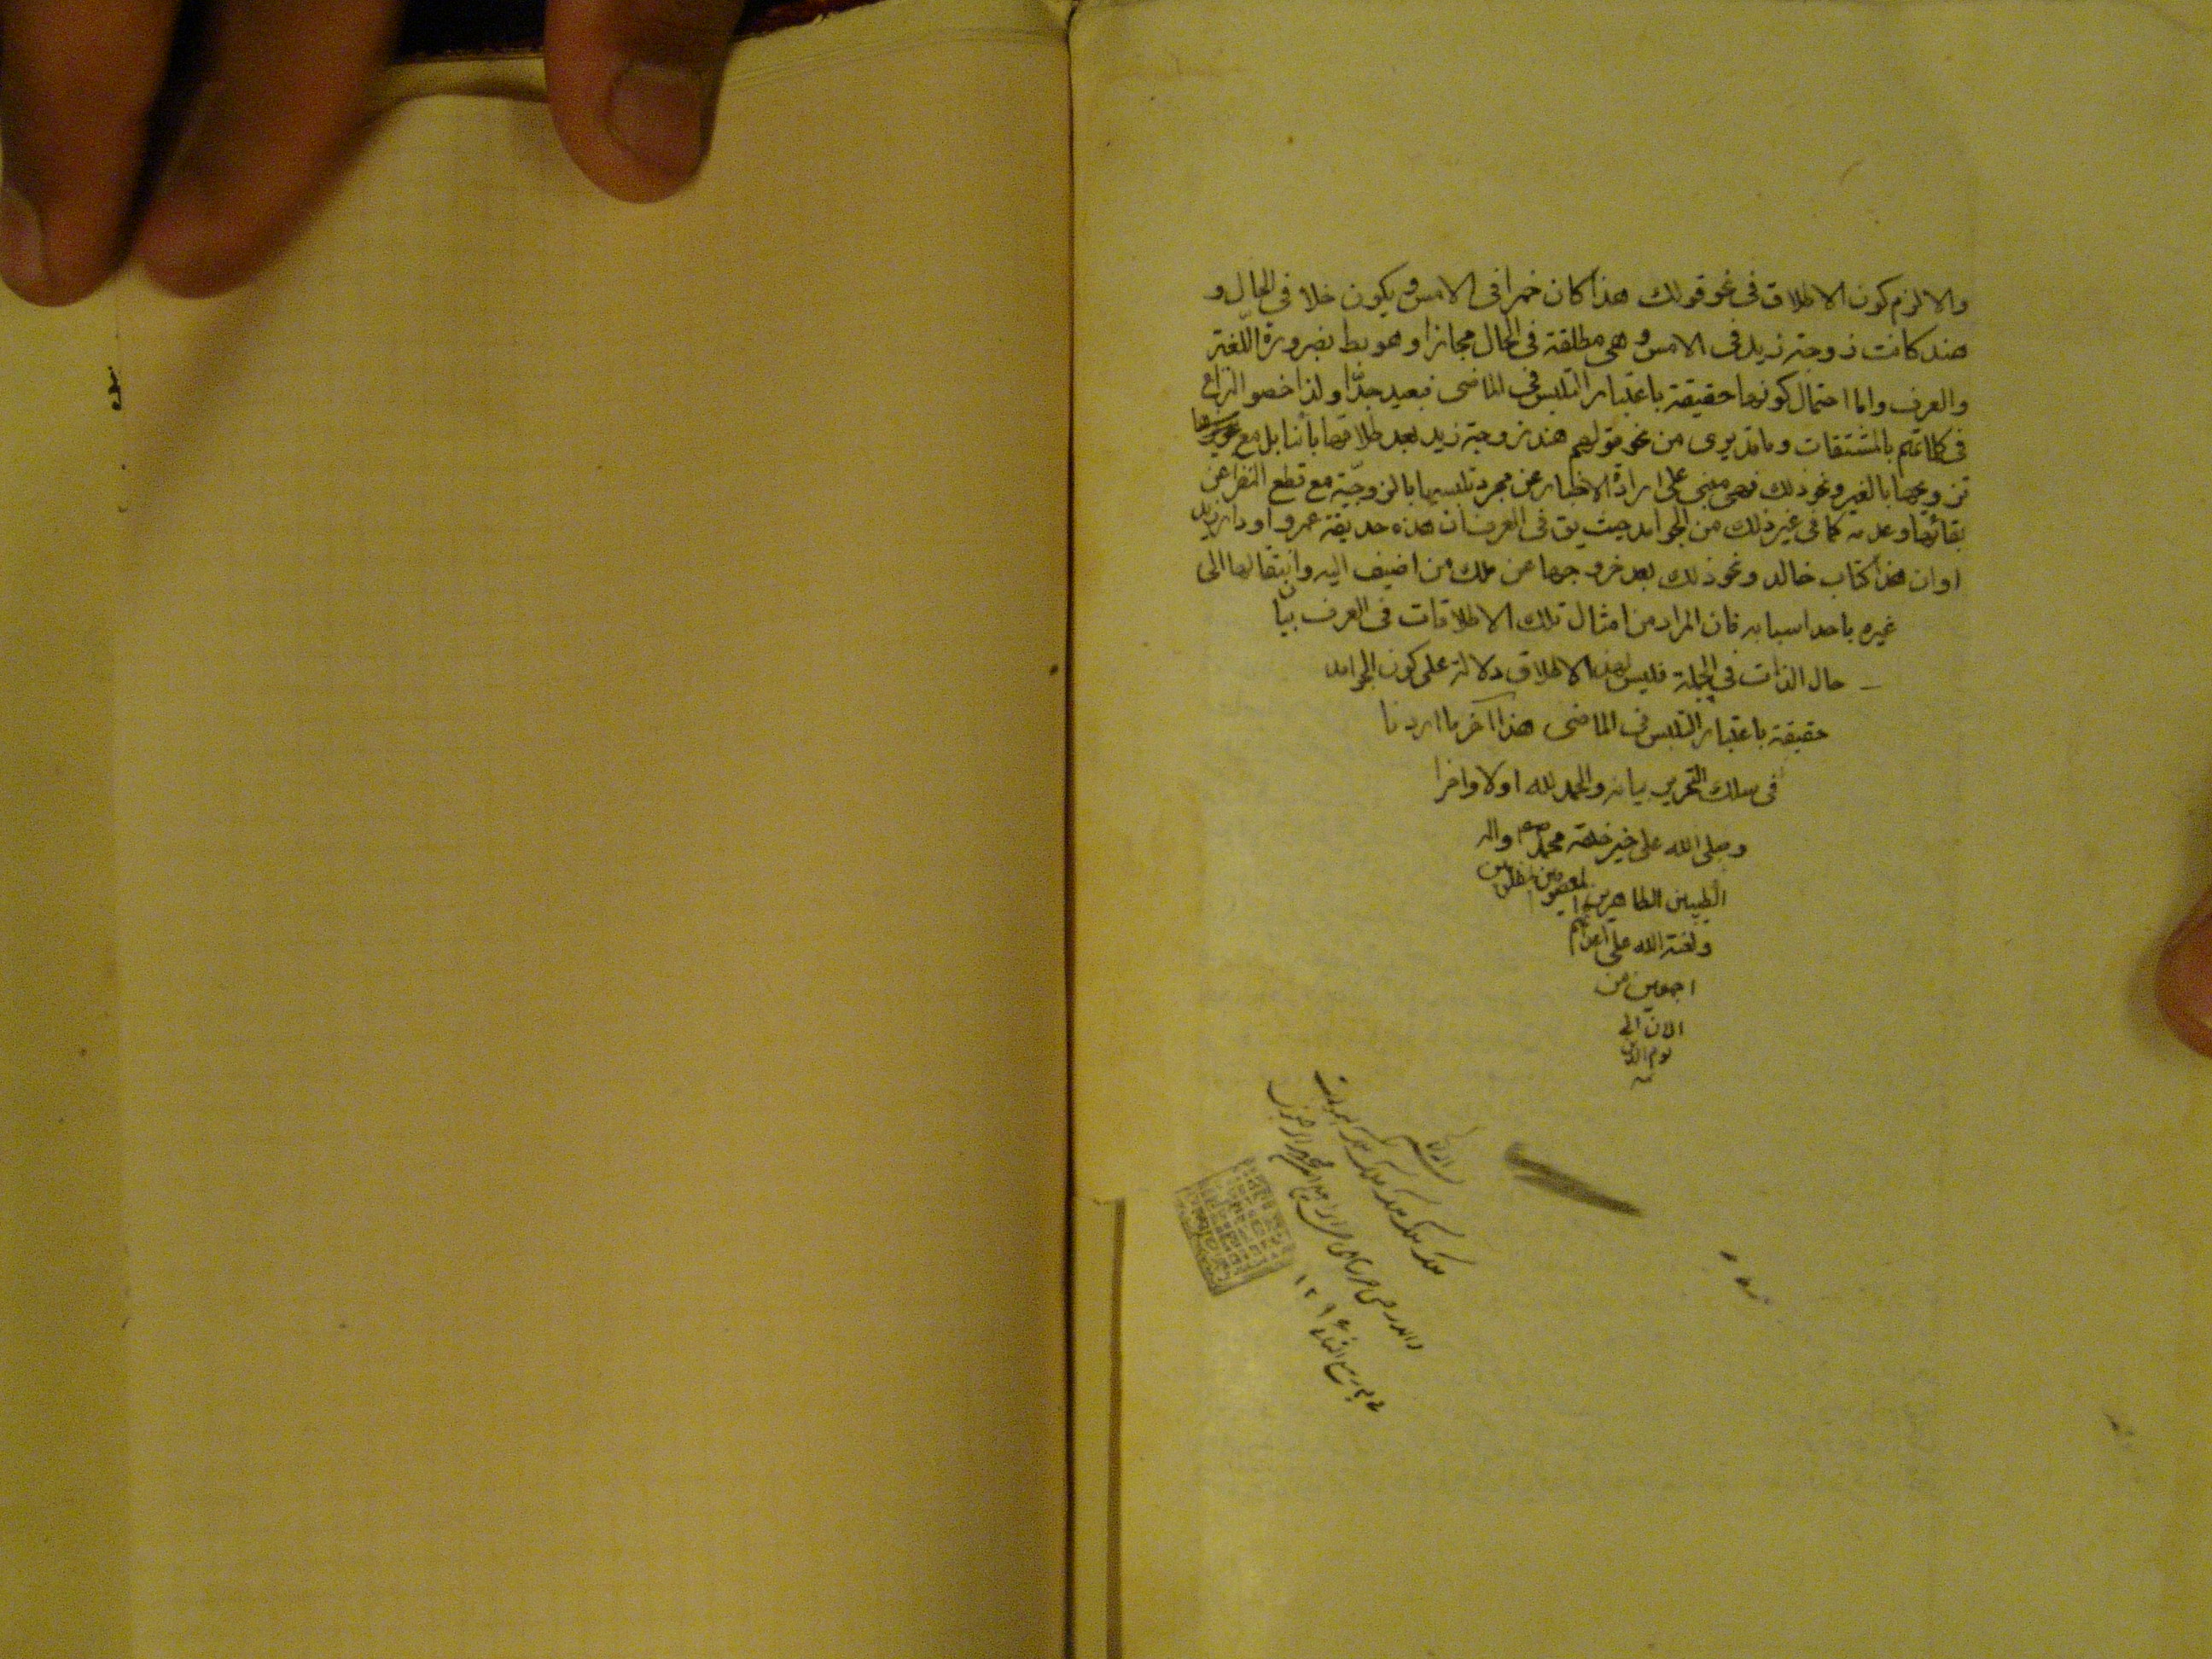 والا لزم كون الاطلاق فى نحو قولك هذا كان خمرا فى الامس ويكون خلا فى الحال و
هند كانت زوجة زيد فى الامس وهى مطلقة فى الحال مجازا وهو بط بضرورة اللّغة
والعرف واما احتمال كونها حقيقة باعتبار التلبس فى الماضى فبعيد جدّا ولذا خصوا النزاع
فى كلماتهم بالمشتقات وما قد يرى من نحو قولهم هند زوجة زيد بعد طلاقها بائنا بل مع
تزويجها بالغير ونحو ذلك فهى مبنى على ارادة الاخبار عن مجرد تلبسها بالزوجيّة مع قطع النظر عن
بقائها وعدمه كما فى غير ذلك من الجوامد حيث يق فى العرف ان هذه حديقة عمرو او دار زيد
او ان هذا كتاب خالد ونحو ذلك بعد خروجها عن ملك من اضيف اليه وانتقالها الى
غيره باحد اسبابه فان المراد من امثال تلك الاطلاقات فى العرف بيان
حال الذات فى الجملة فليس لهذا الاطلاق دلالة على كون الجوامد
حقيقة باعتبار التلبس فى الماضى هذا آخر ما اردنا
فى سلك التحرير بيانه والحمد لله اولا واخرا
وصلى الله على خير خلقه محمد واله
الطيبين الطاهرين المعصومين
ولعنة الله على اعدائهم
اجمعين من
الان الى
يوم الدين
١٢٩٤